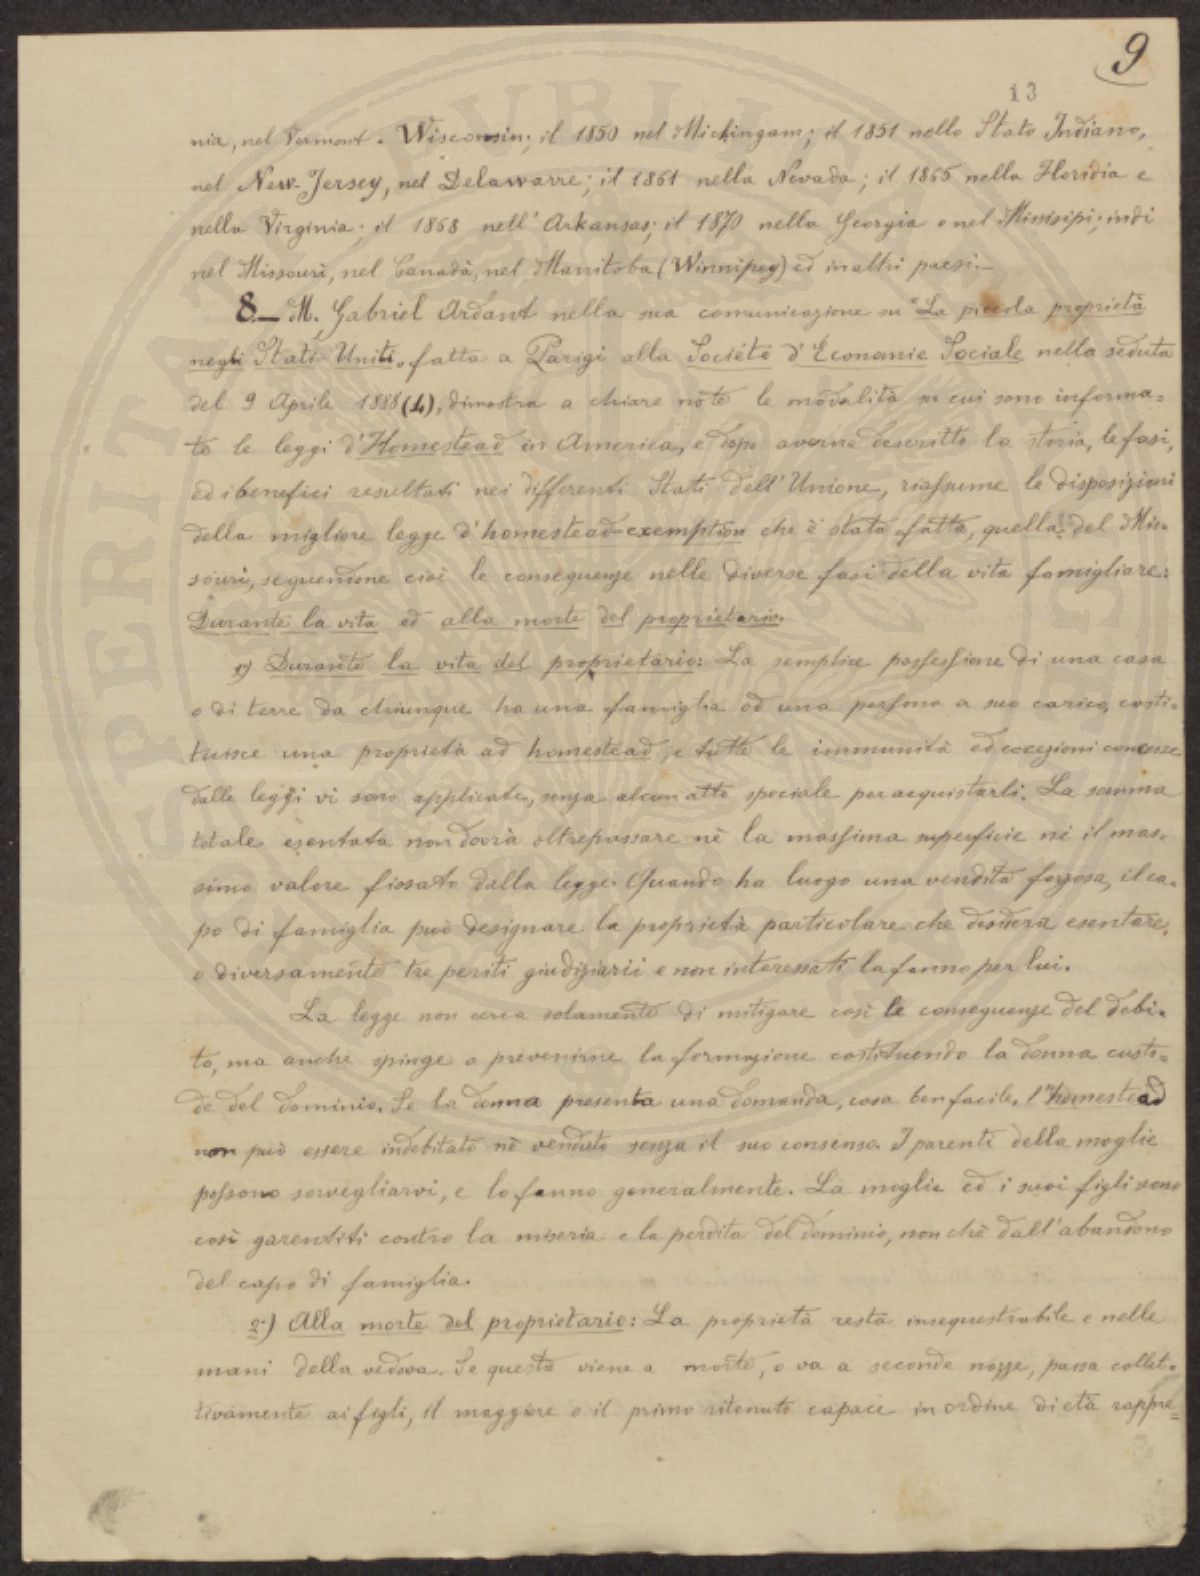 9
13
nia, nel Vermont e Wisconsin; il 1850 nel Michingam; il 1851 nello Stato Indiano,
nel New-Jersey, nel Delawarre; il 1861 nella Nevada; il 1865 nella Floridia e
nella Virginia; il 1868 nell'Arkansas; il 1870 nella Georgia e nel Missisipi; indi
nel Missouri, nel Canadà, nel Manitoba (Winnipeg) ed in altri paesi.—
8.— M. Gabriel Ardant nella sua comunicazione su "La piccola proprietà
negli Stati Uniti" fatta a Parigi alla Société d'Economie Sociale nella seduta
del 9 Aprile 1888 (4), dimostra a chiare note le modalità su cui sono informa=
te le leggi d'Homestead in America, e dopo averne descritto la storia, le fasi,
ed i benefici resultati nei differenti Stati dell'Unione, riassume le disposizioni
della migliore legge d'homestead-exemption che è stata fatta, quella del Mis=
souri, seguendone cioè le conseguenze nelle diverse fasi della vita famigliare:
Durante la vita ed alla morte del proprietario.
1º) Durante la vita del proprietario: La semplice possessione di una casa
o di terre da chiunque ha una famiglia od una persona a suo carico, costi=
tuisce una proprietà ad homestead, e tutte le immunità ed eccezioni concesse
dalle leggi vi sono applicate, senza alcun atto speciale per acquistarli. La somma
totale esentata non dovrà oltrepassare nè la massima superficie nè il mas=
simo valore fissato dalla legge. Quando ha luogo una vendita forzosa, il ca=
po di famiglia può designare la proprietà particolare che desidera esentare,
o diversamente tre periti giudiziarii e non interessati la fanno per lui.
La legge non cerca solamente di mitigare così le conseguenze del debi=
to, ma anche spinge a prevenirne la formazione costituendo la donna custo=
de del dominio. Se la donna presenta una domanda, cosa ben facile, l'homestead
non può essere indebitato nè venduto senza il suo consenso. I parenti della moglie
possono sorvegliarvi, e lo fanno generalmente. La moglie ed i suoi figli sono
così garentiti contro la miseria e la perdita del dominio, non chè dall'abandono
del capo di famiglia.
2º) Alla morte del proprietario: La proprietà resta insequestrabile e nelle
mani della vedova. Se questa viene a morte, o va a seconde nozze, passa collet=
tivamente ai figli, il maggiore o il primo ritenuto capace in ordine di età rappre=